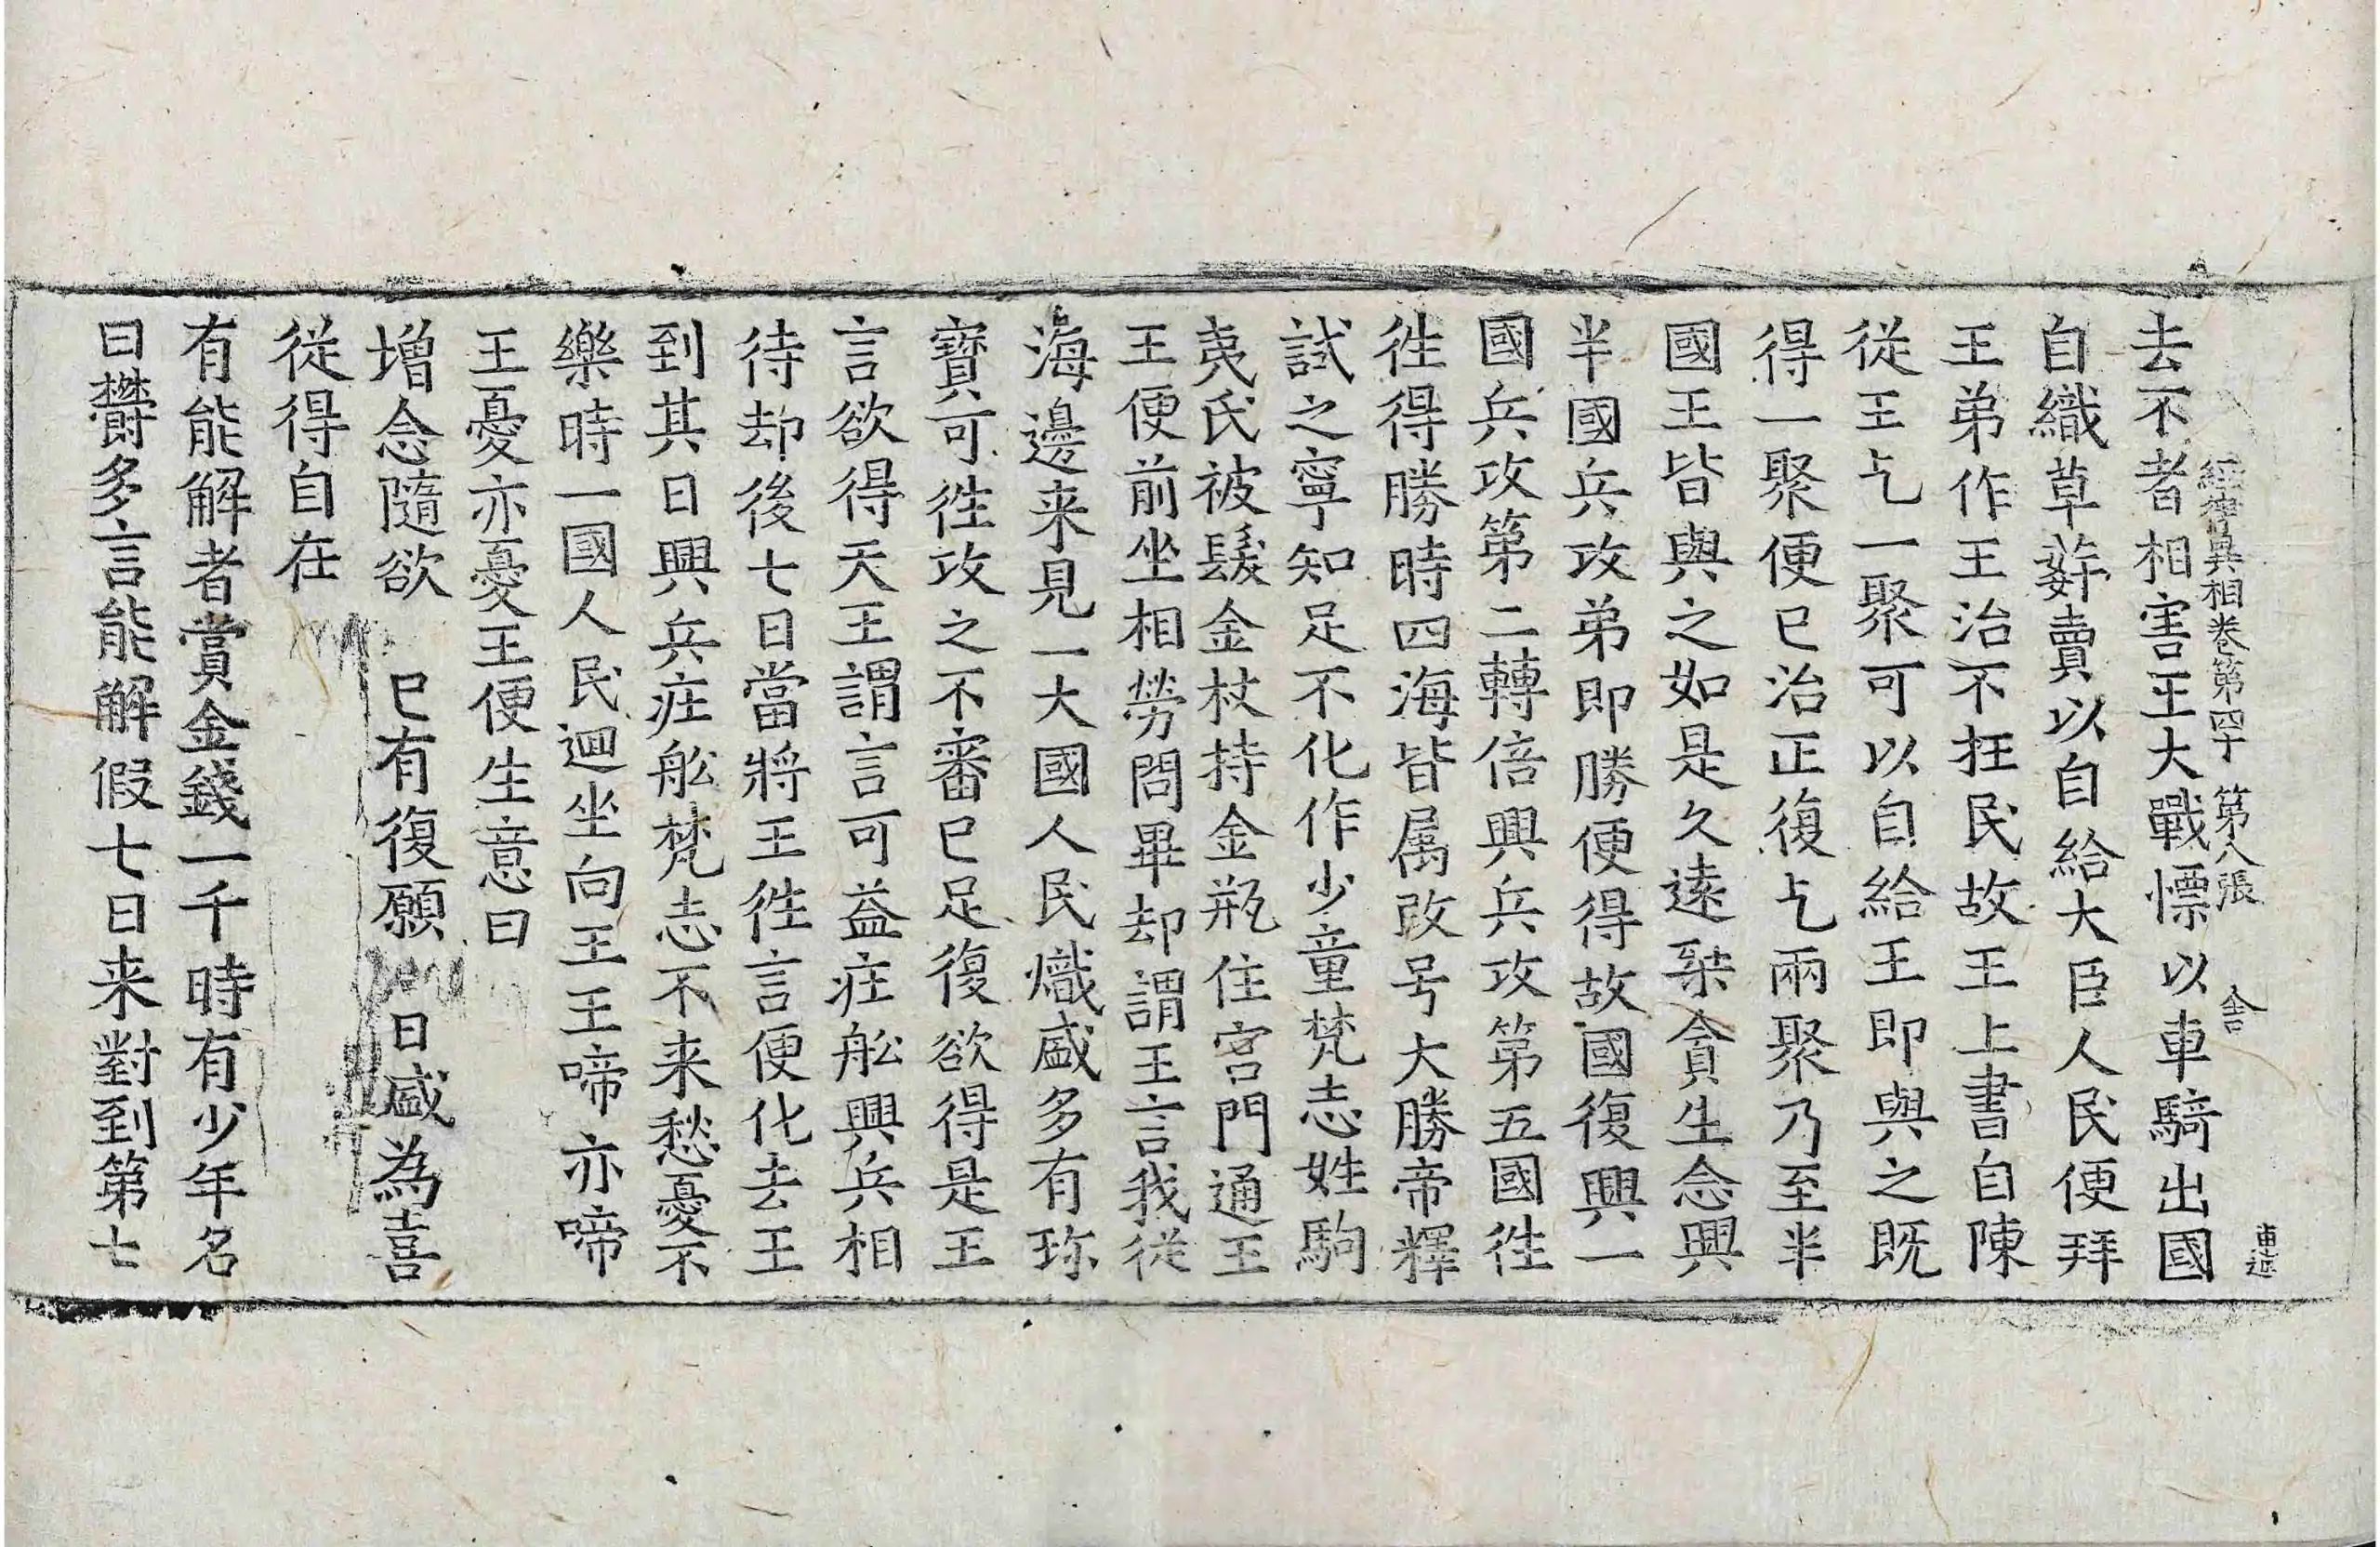 經律異相卷第四十 第八張 舍
去不者相害王大戰慓以車騎出國
自織草屩賣以自給大臣人民便拜
王弟作王治不抂民故王上書自陳
從王乞一聚可以自給王即與之既
得一聚便已治正復乞兩聚乃至半
國王皆與之如是久遠桀貪生念興
半國兵攻弟即勝便得故國復興一
國兵攻第二轉倍興兵攻第五國徃
徃得勝時四海皆属改号大勝帝釋
試之寧知足不化作少童梵志姓駒
夷氏被髮金杖持金瓶住宮門通王
王便前坐相勞問畢却謂王言我從
海邊来見一大國人民熾盛多有珎
寶可徃攻之不審已足復欲得是王
言欲得天王謂言可益庄舩興兵相
待却後七日當將王徃言便化去王
到其日興兵庄舩梵志不来愁憂不
樂時一國人民迴坐向王王啼亦啼
王憂亦憂王便生意曰
增念隨欲 已有復願 日盛為喜
從得自在
有能解者賞金錢一千時有少年名
曰欝多言能解假七日来對到第七